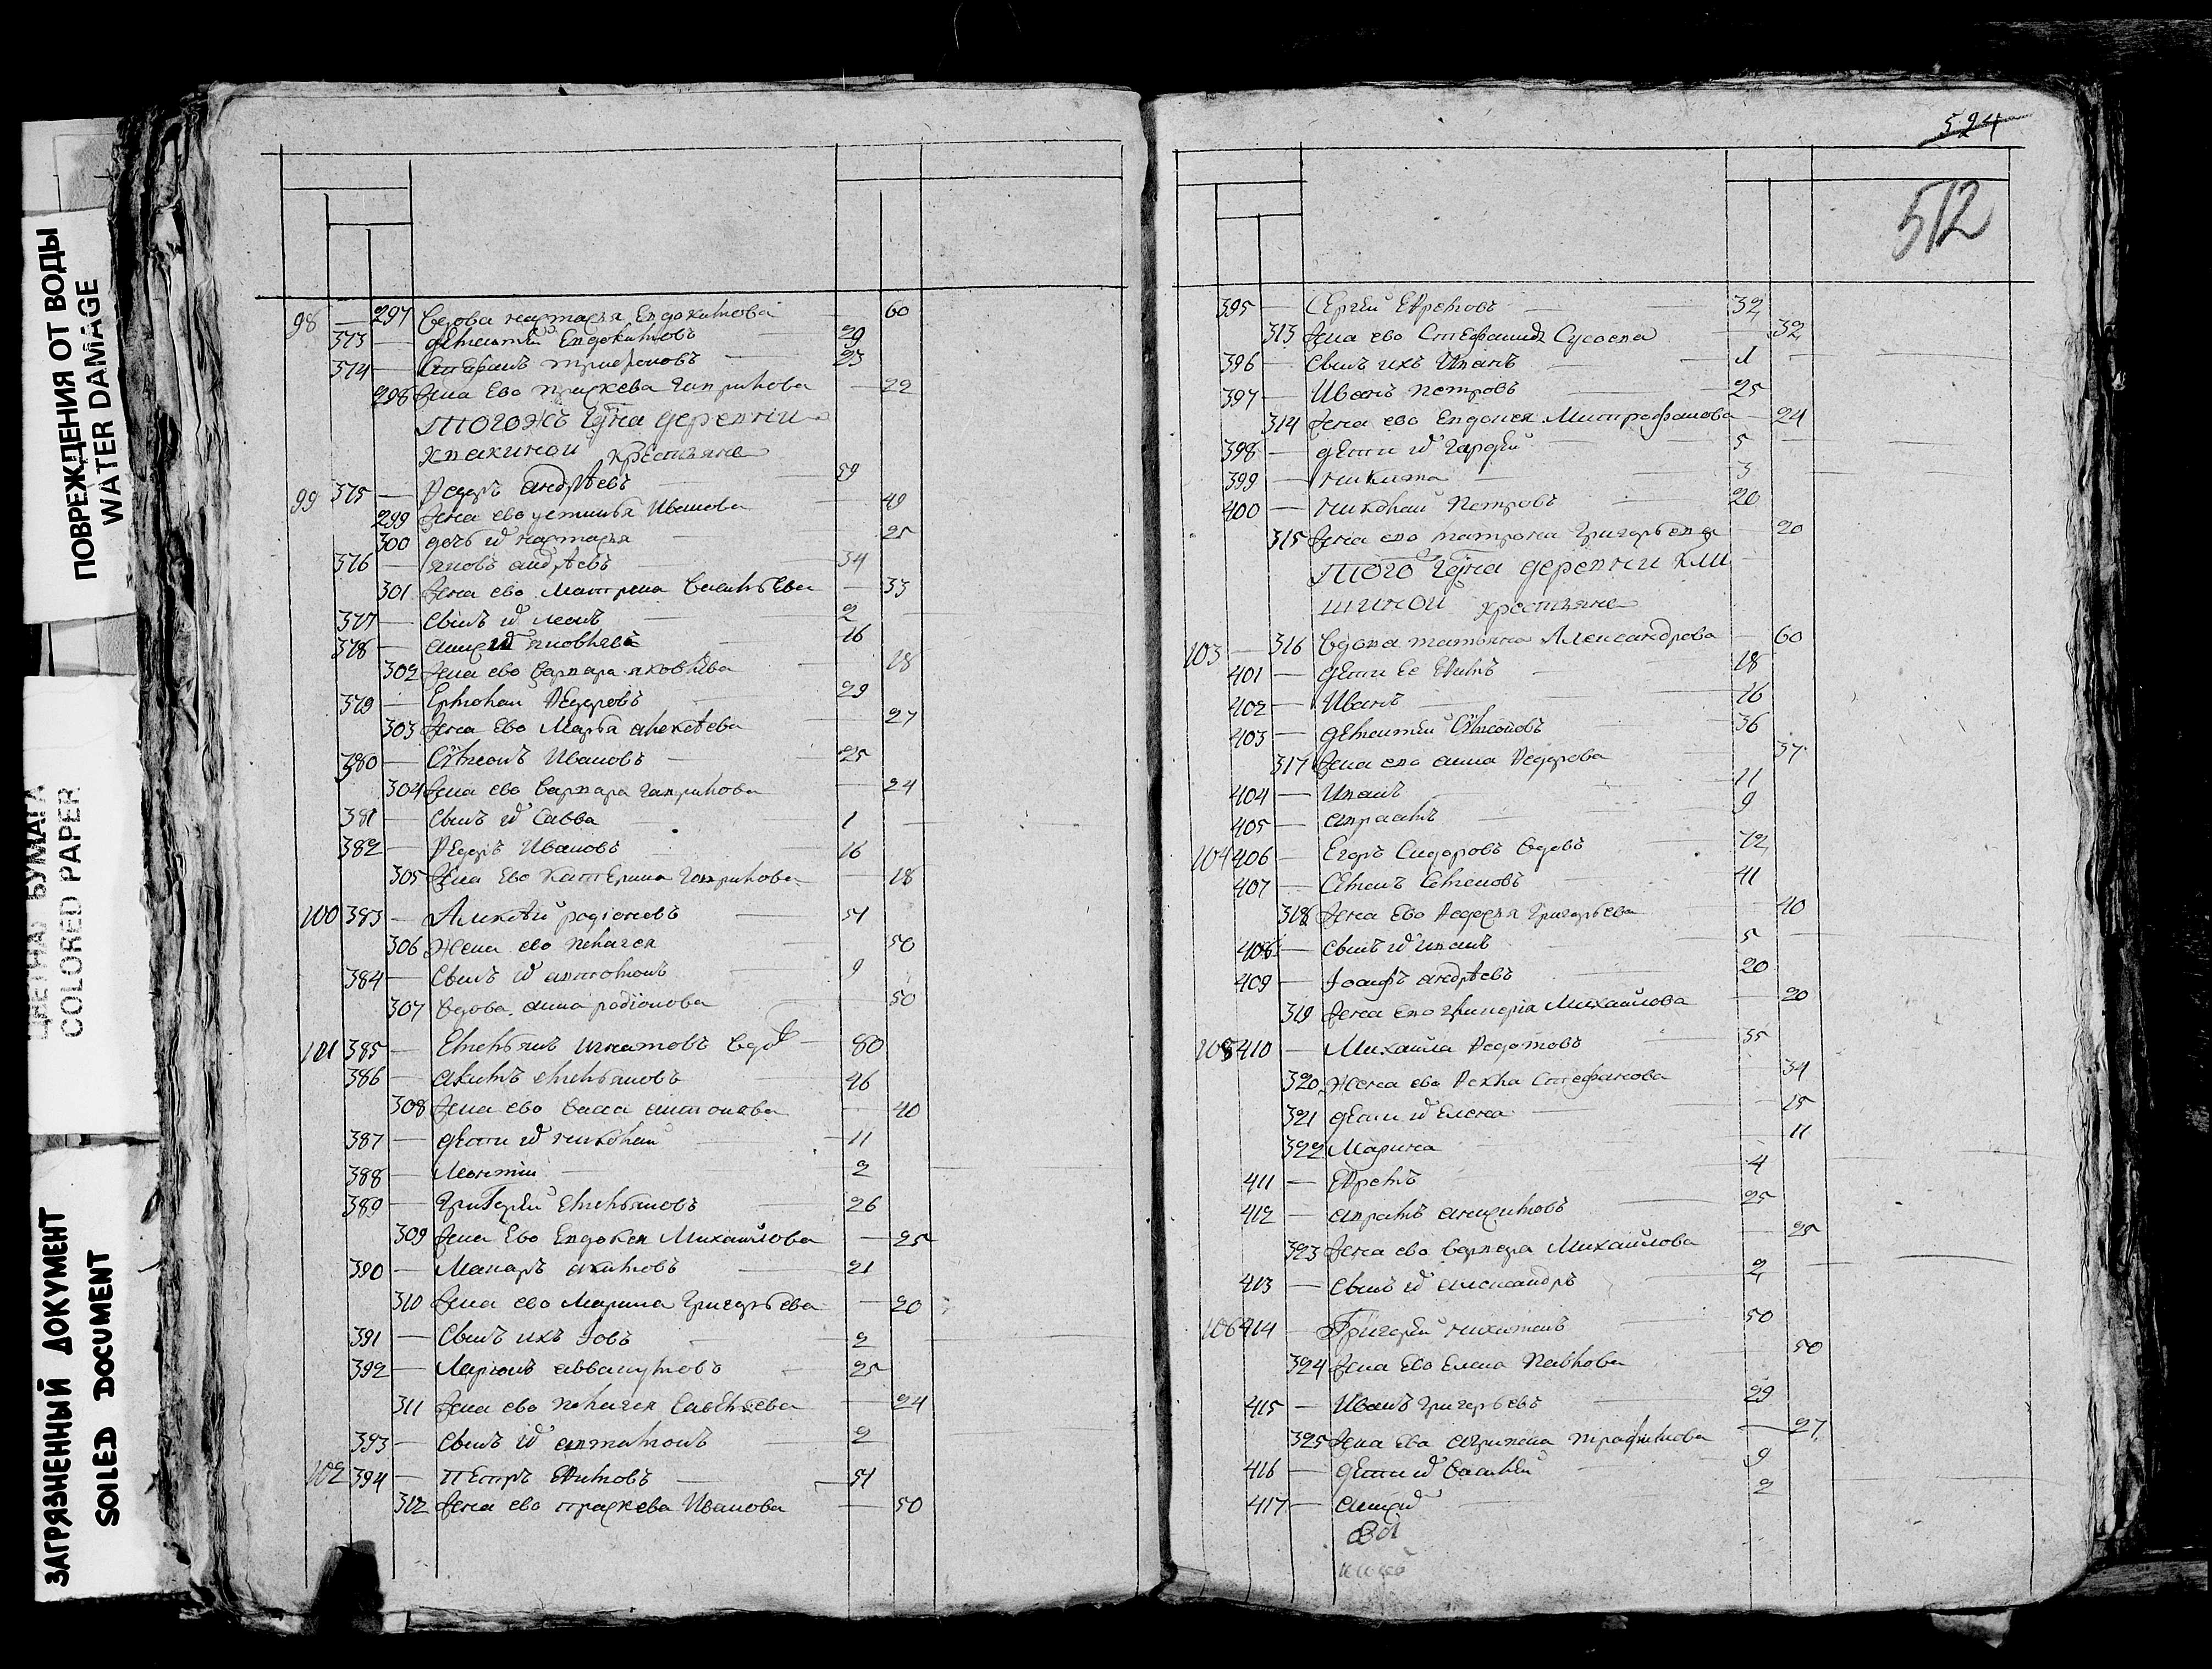 ПОВРЕЖДЕНИЯ ОТ ВОДЫ
WATER DAMAGE
ЦВЕТНАЯ БУМАГА
COLORED PAPER
ЗАГРЯЗНЕННЫЙ ДОКУМЕНТ
SOILED DOCUMENT
98 — 297 Вдова настасья Евдокимова — 60
373 — Евдокимовъ 29
374 — Стефанъ трифоновъ — 23
298 Жена Ево праскева гаврилова — 22
Тогожъ Села деревни
крестьяне
99 375 — Ѳедоръ андрѣевъ 59
299 Жена ево устинья Иванова — 49
300 дочь их настасья — 25
376 — яковъ андрѣевъ — 34
301 Жена ево Матрена васильева — 33
377 — Сынъ их леонъ — 2
378 — яковлевъ — 16
302 Жена ево варвара яковлева — 18
379 — Ермолай Ѳедоровъ — 29
303 Жена Ево Марѳа алексѣева — 27
380 — Сѵмеонъ Ивановъ — 25
304 Жена ево варвара гаврилова — 24
381 — Сынъ их Савва — 1
382 — Ѳедоръ Ивановъ — 16
305 Жена Ево катерина гаврилова — 18
100 383 — Алексѣй родіоновъ — 51
306 Жена ево пелагея — 50
384 — Сынъ их 9
307 вдова анна родіонова — 50
101 385 — Емельянъ игнатовъ вдовъ — 80
386 — акимъ емельяновъ — 46
308 Жена ево васса — 40
387 — дети их николай — 11
388 — леонтій — 2
389 — григорей емельяновъ — 26
309 Жена Ево Евдокея Михайлова — 25
390 — Макаръ акимовъ — 21
310 Жена ево Марина григорьева — 20
391 — Сынъ ихъ іовъ — 2
392 — Ларіонъ аввакумовъ — 25
311 Жена ево пелагея Савельева — 24
393 — Сынъ их — 2
102 394 — Петръ Ефимовъ — 51
312 Жена ево праскева Иванова — 50
524
512
395 — Сергѣй Ефремовъ — 32
313 Жена ево Стефанида Сысоева — 32
396 — Сынъ ихъ Иванъ — 1
397 — Иванъ петровъ — 25
314 Жена ево Евдокея Митрофанова — 24
398 — дети их гордѣй — 5
399 — никита — 3
400 — николай Петровъ — 20
315 Жена ево матрона григорьева — 20
Того Села деревни Кли
шиной крестьяне
103 — 316 вдова татьяна Александрова — 60
401 — дети ее Ефимъ — 18
402 — Иванъ — 16
403 — Сѵмеоновъ — 36
317 Жена ево анна Ѳедорова — 37
404 — Иванъ — 11
405 — 9
104 406 — Егоръ Сидоровъ вдовъ — 72
407 — Семенъ Семеновъ — 41
318 Жена Ево Ѳедосья григорьева — 40
408 — Сынъ их иванъ — 5
409 — Іосифъ андрѣевъ — 20
319 Жена ево гликерія Михайлова — 20
105 410 — Михайла Ѳедотовъ — 35
320 Жена ево Ѳекла Стефанова — 34
321 дети их Елена — 15
322 Марина — 11
411 — Ефремъ — 4
412 — 25
323 Жена ево варвара Михайлова — 25
413 — Сынъ их александръ — 2
106 414 — Григорей никитинъ — 50
324 Жена Ево Елена Павлова — 50
415 — Иванъ григорьевъ — 29
325 Жена Ева агрипена трафимова — 27
416 — дети их василѣй — 9
417 — 2